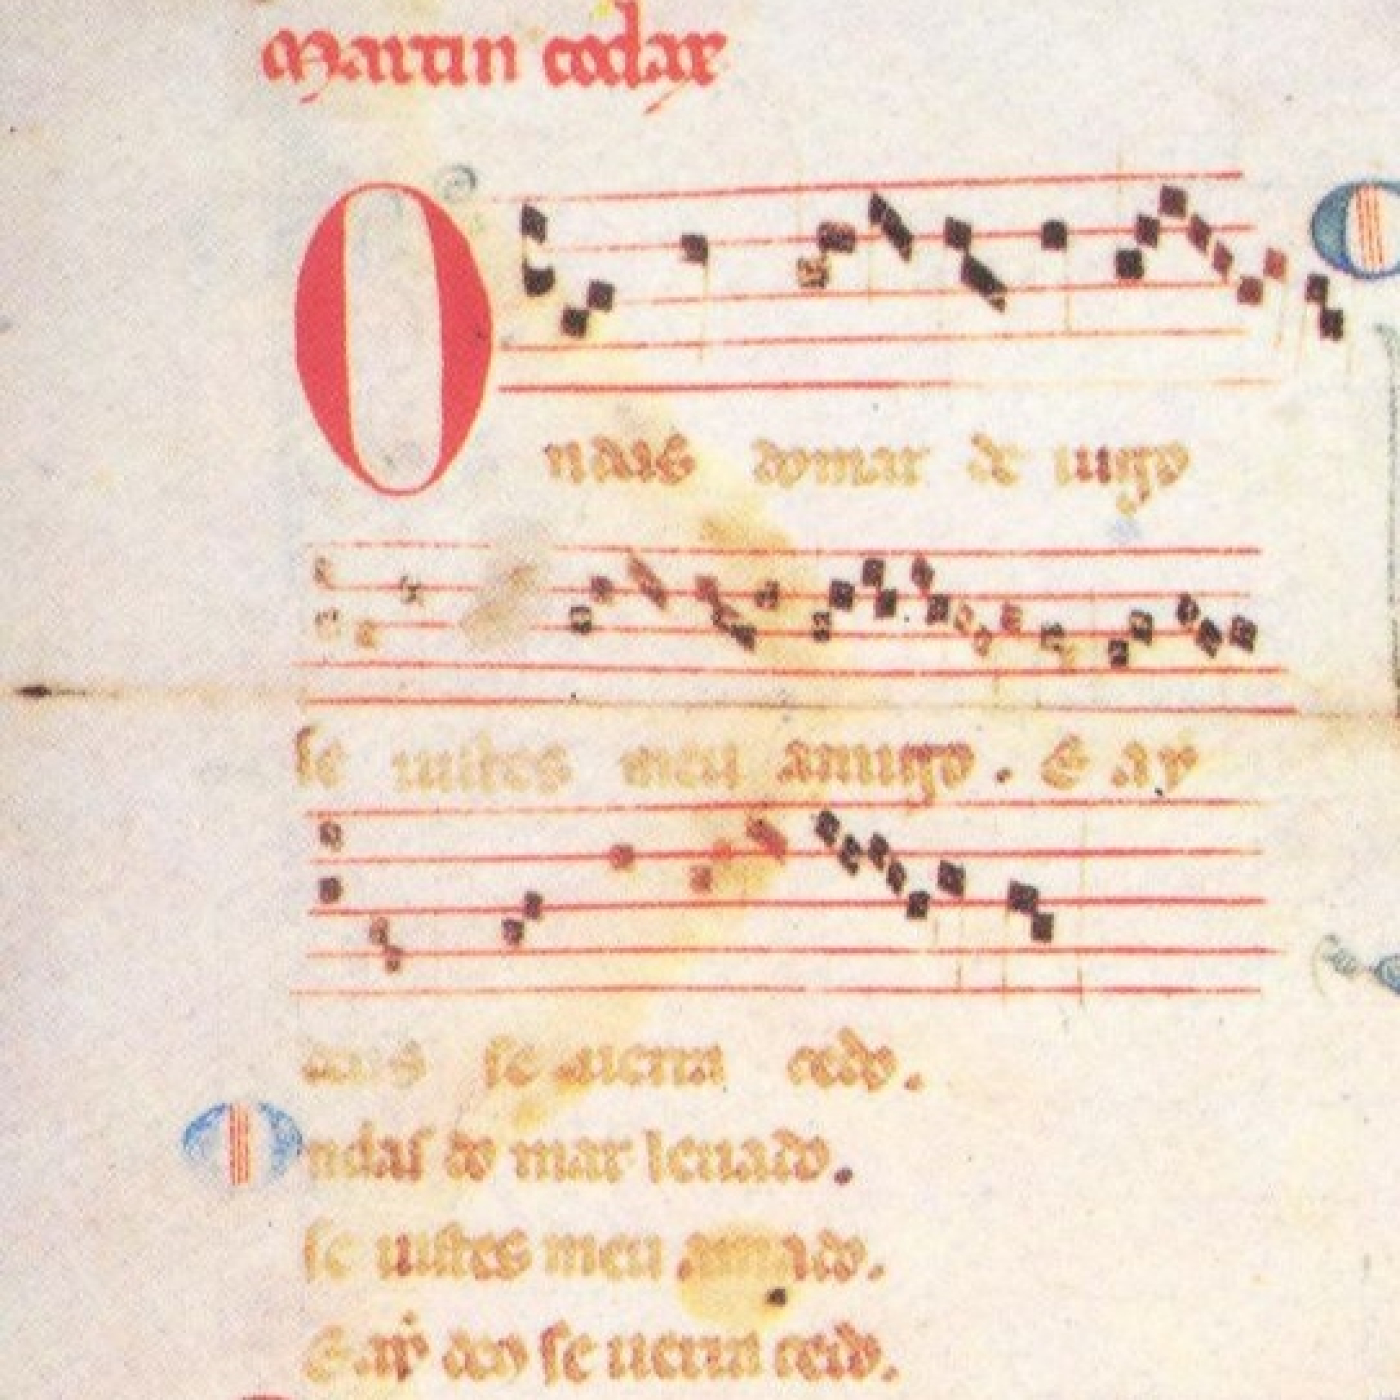 Martin codax
Ondas do mar de uigo
se uistes meu amigo. E ay
deus se uerra cedo.
Ondas do mar leuado.
se uistes meu amado.
E ay deo se uerra cedo.